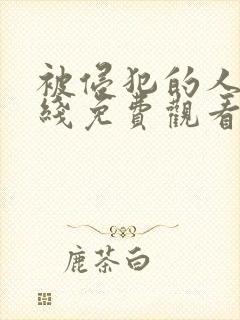 被侵犯的人
綫免費觀看
鹿茶白